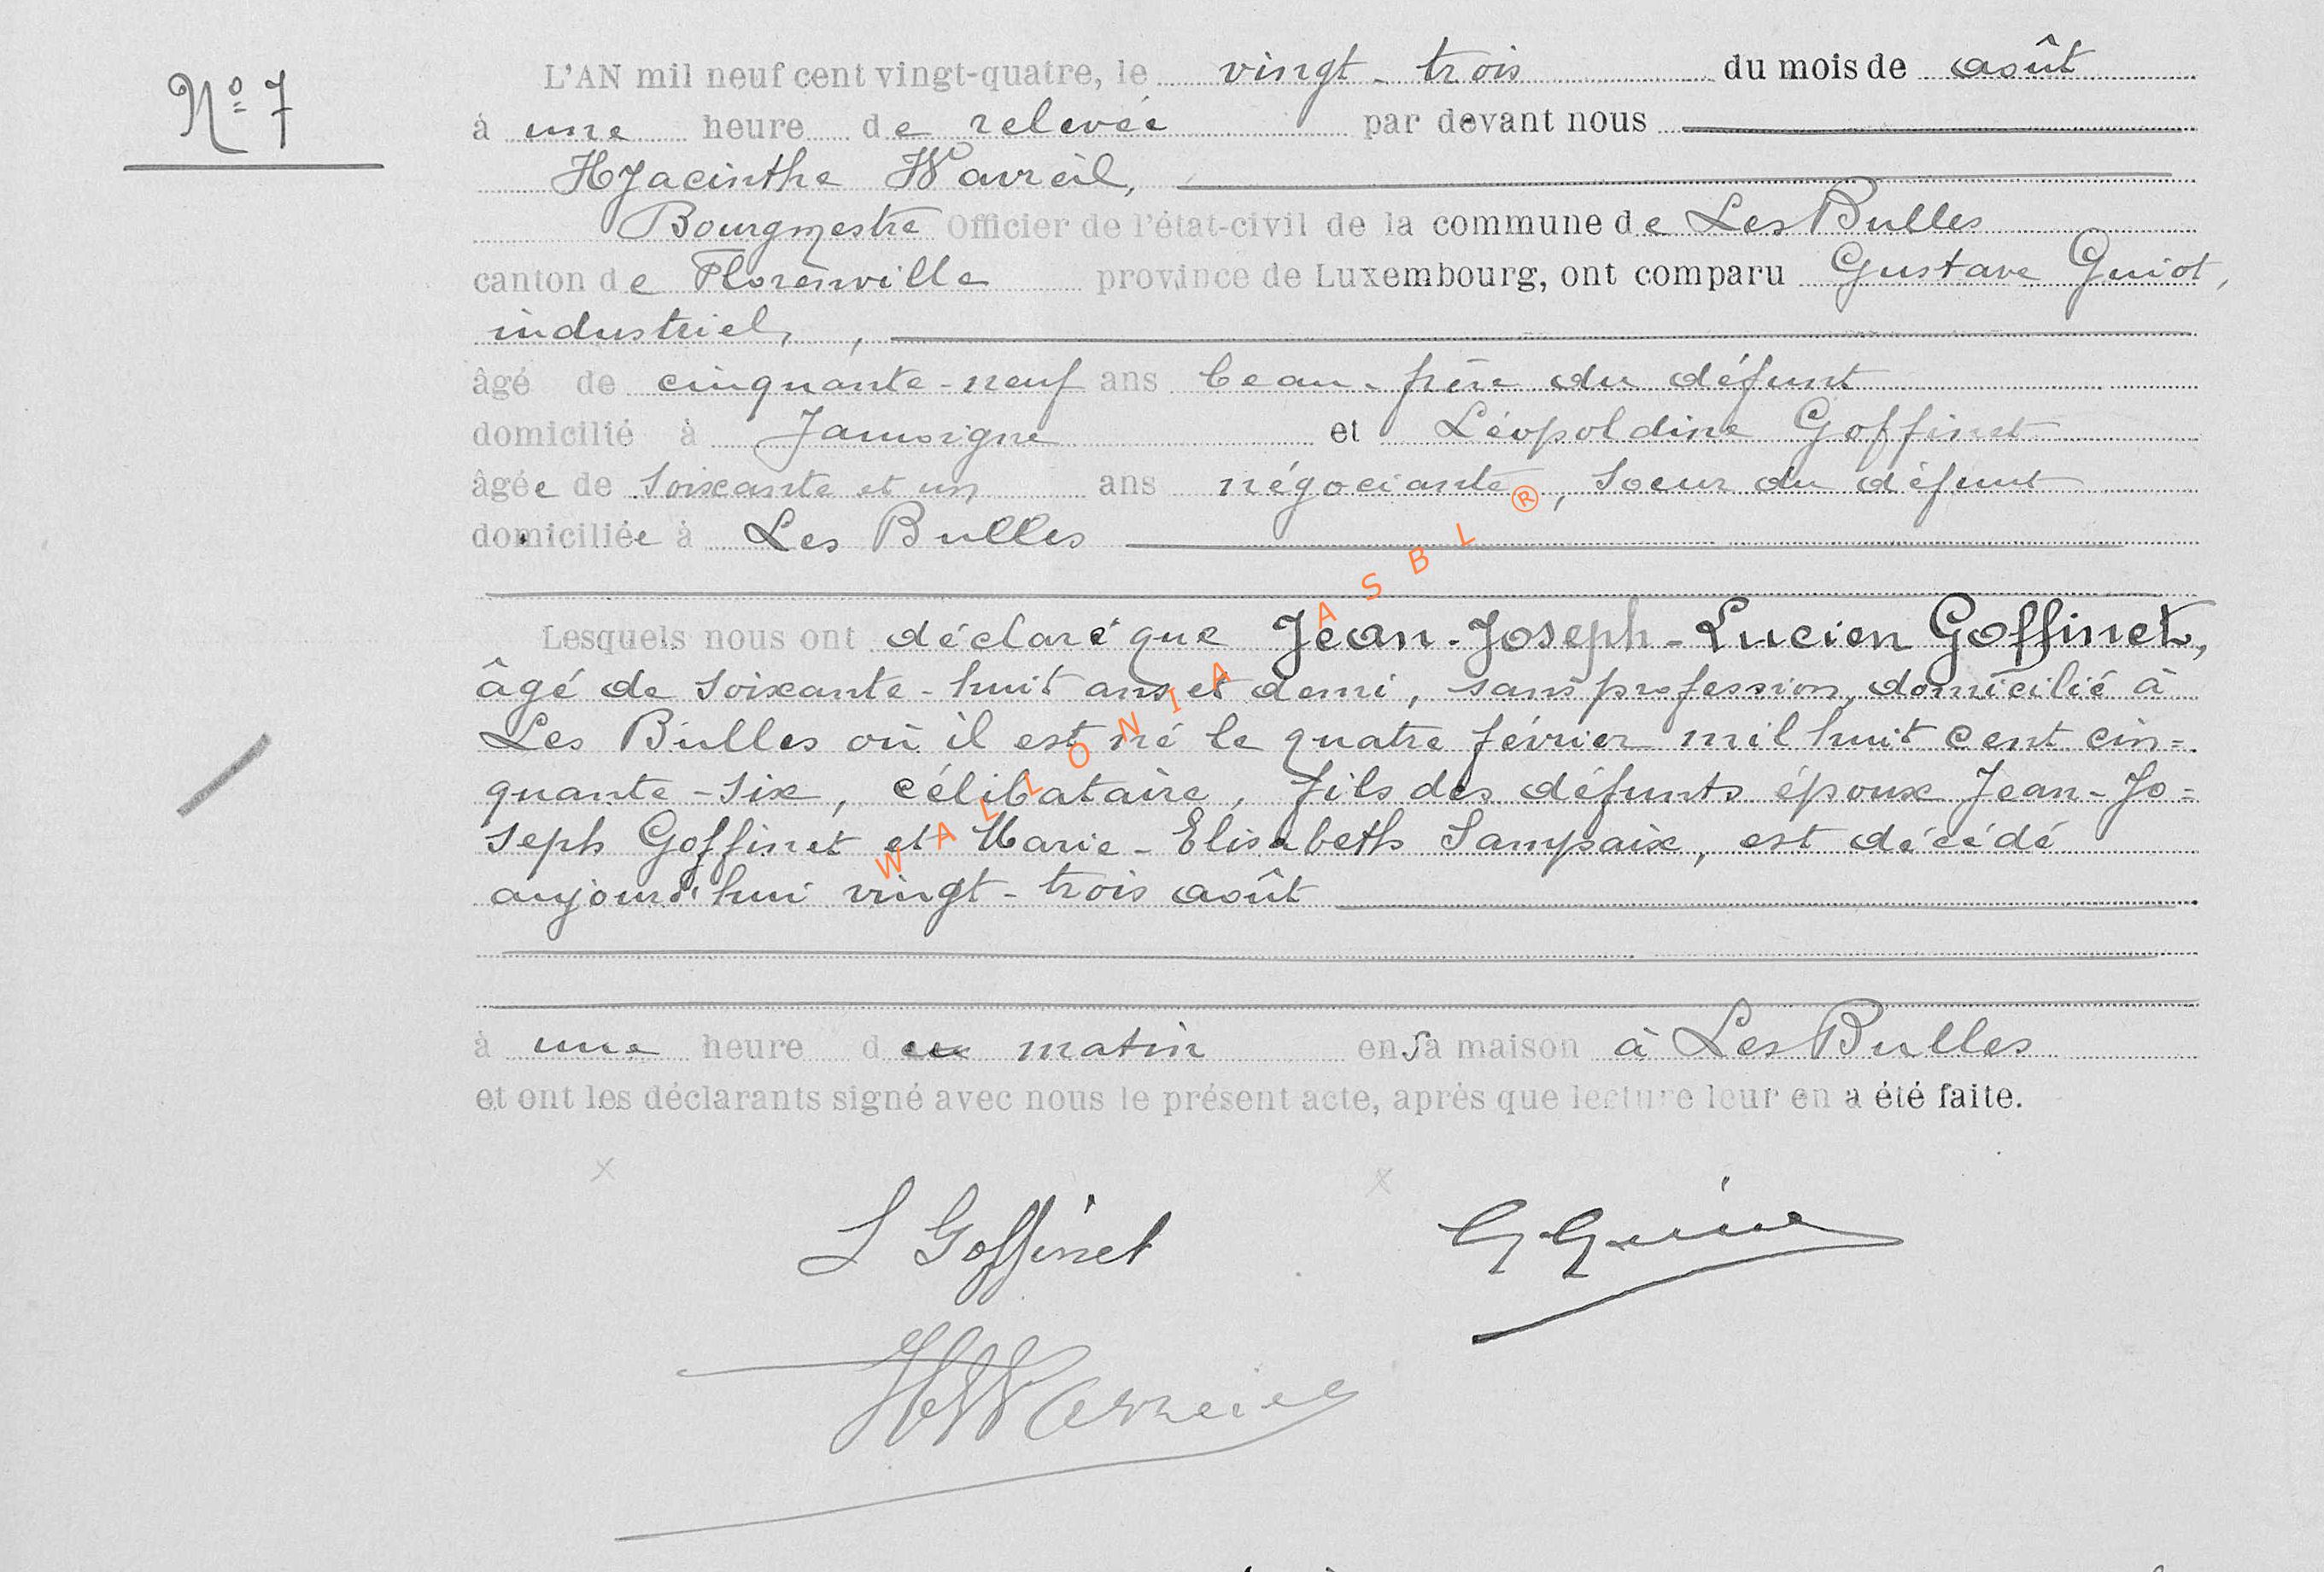 N° 7
L'AN mil neuf cent vingt-quatre, le vingt-trois du mois de août
à une heure de relevée par devant nous
Hyacinthe Wavreil,
Bourgmestre Officier de l'état-civil de la commune de Les Bulles
canton de Florenville province de Luxembourg, ont comparu Gustave Guiot,
industriel, ,
âgé de cinquante-neuf ans beau-frère du défunt
domicilié à Jamoigne et Léopoldine Goffinet
âgée de soixante et un ans négociante, soeur du défunt
domiciliée à Les Bulles
Lesquels nous ont déclaré que Jean-Joseph-Lucien Goffinet,
âgé de soixante-huit ans et demi, sans profession, domicilié à
Les Bulles où il est né le quatre février mil huit cent cin=
quante-six, célibataire, fils des défunts époux Jean-Jo=
seph Goffinet et Marie-Elisabeth Sampaix, est décédé
aujourd'hui vingt-trois août
à une heure du matin en sa maison à Les Bulles
et ont les déclarants signé avec nous le présent acte, après que lecture leur en a été faite.
L Goffinet
WALLONIA ASBL ®